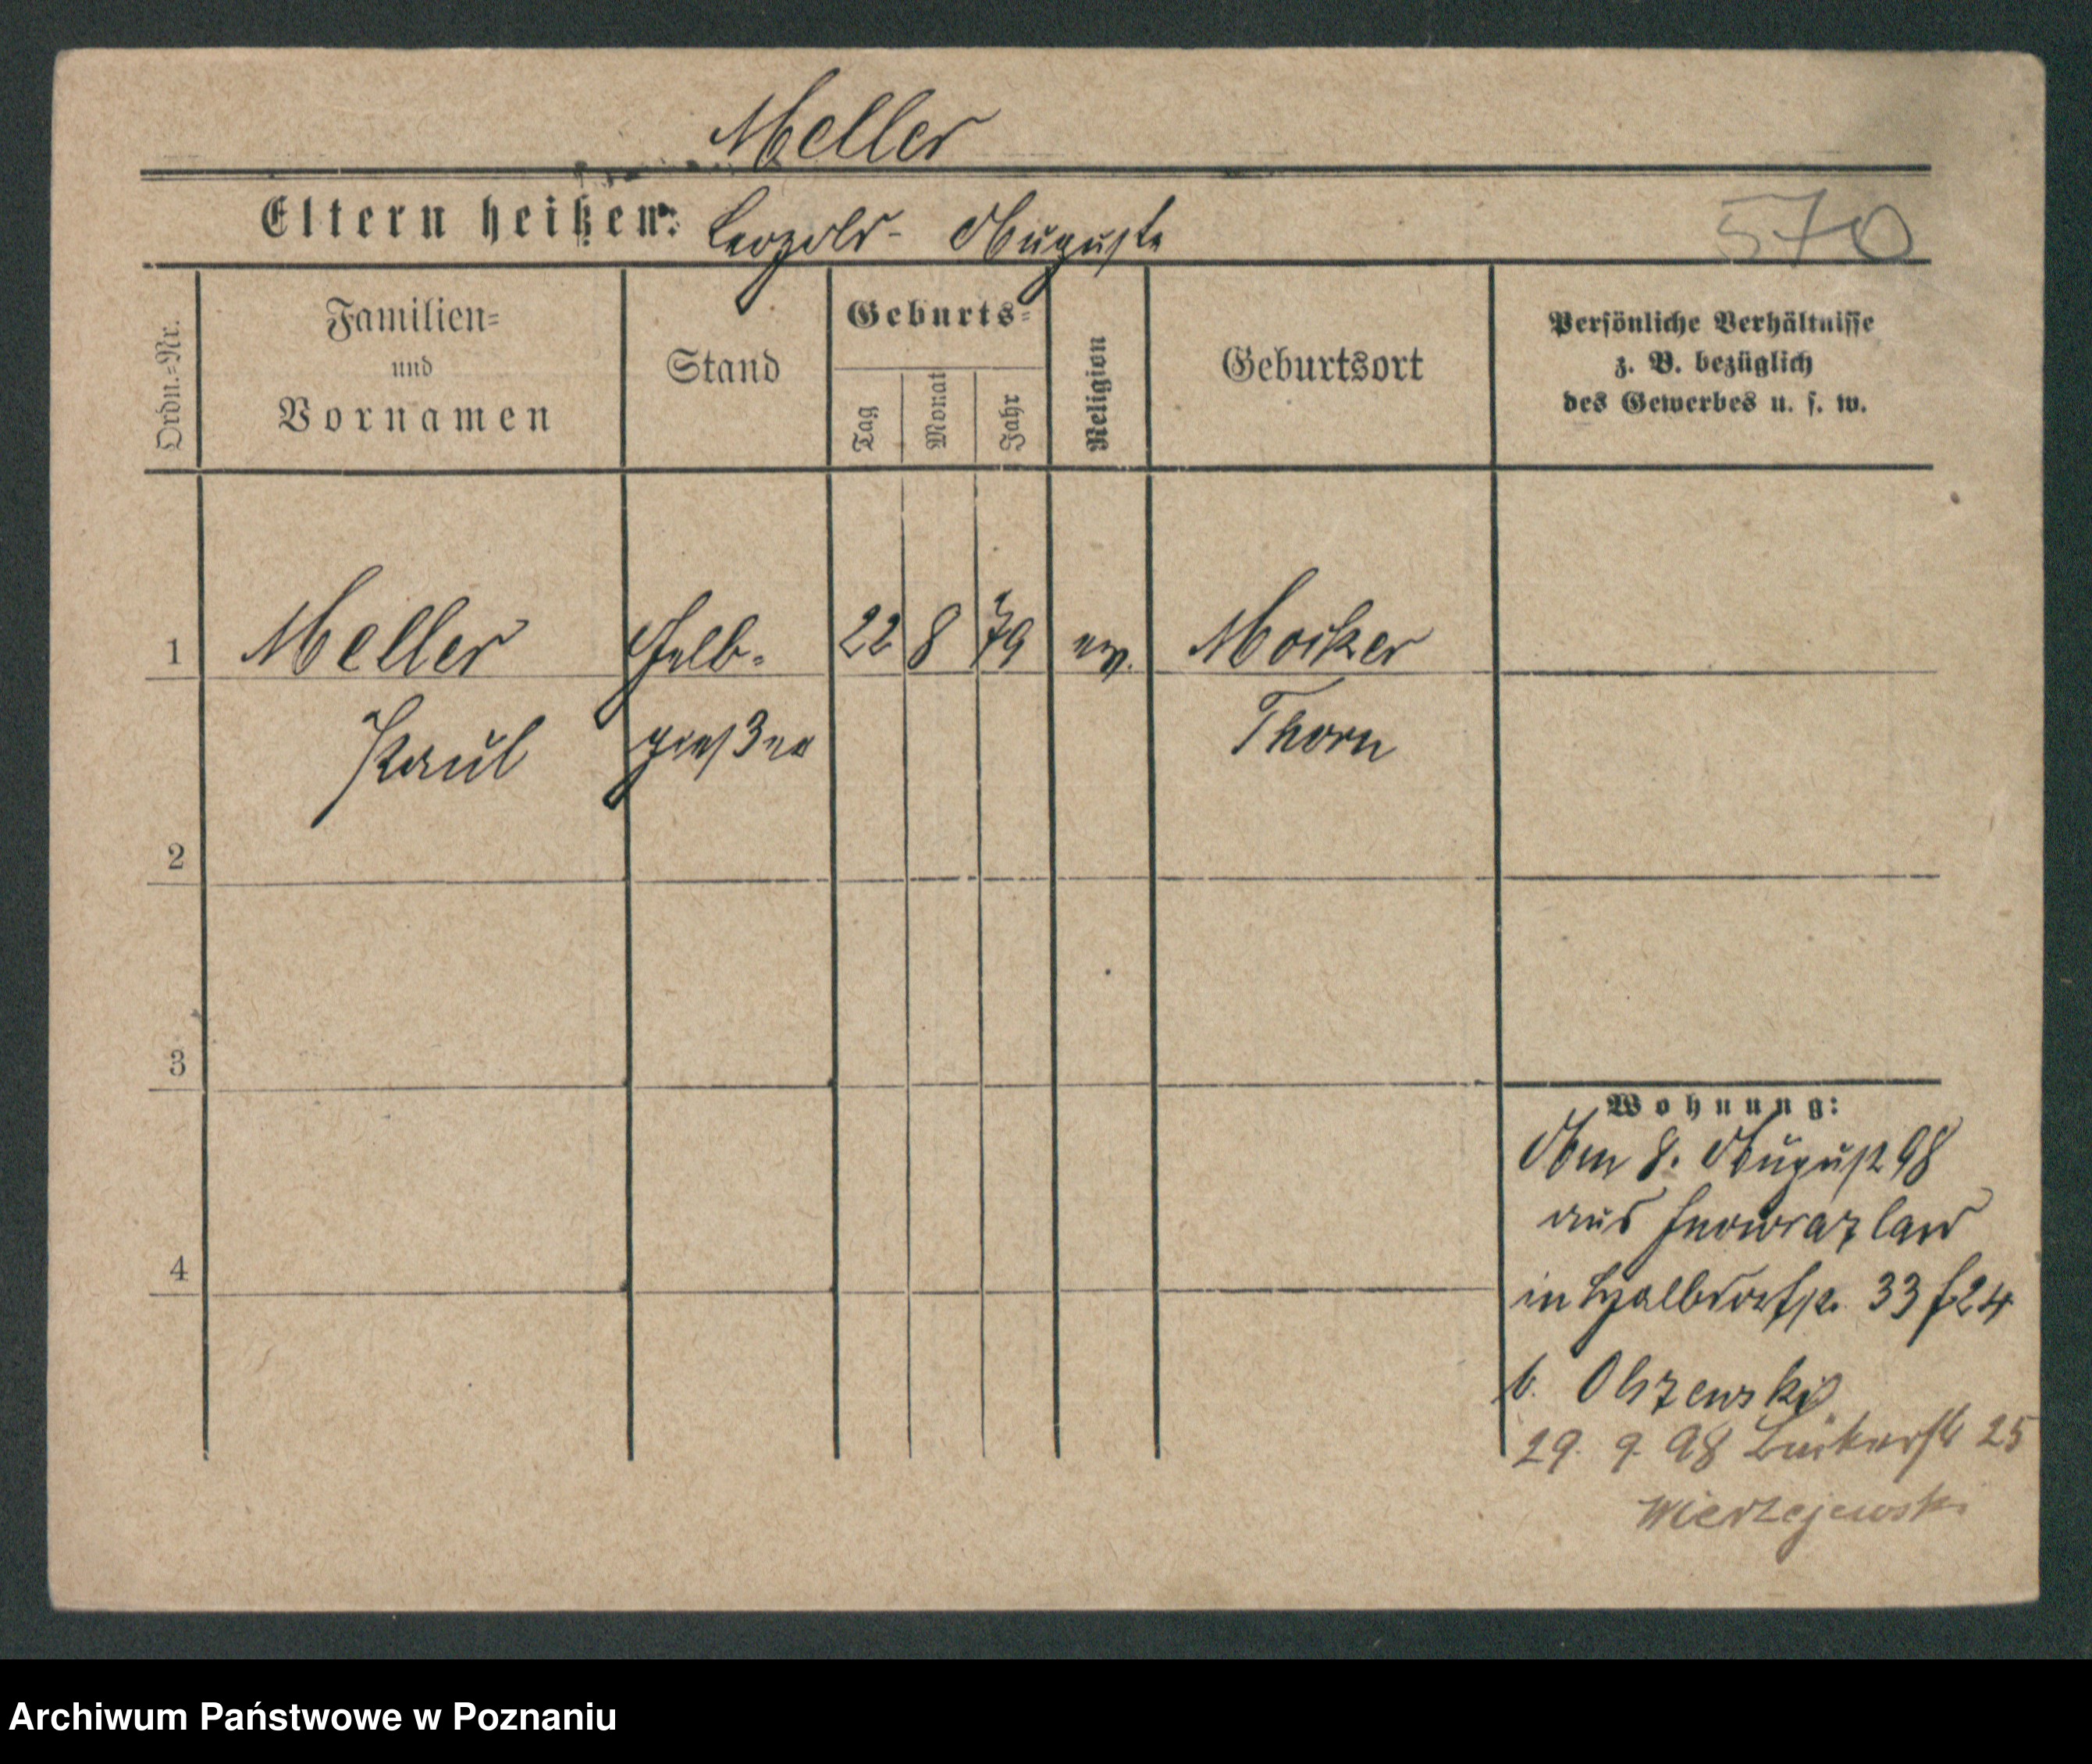 Meller
Eltern heißen: Leopold - Auguste
570
Ordn.=Nr.
Familien=
und
Vornamen
Stand
Geburts=
Tag
Monat
Jahr
Religion
Geburtsort
Persönliche Verhältnisse
z. B. bezüglich
des Gewerbes u. s. w.
1 Meller Gelb- 22 8 79 ev. Mocker
Paul gießer Thorn
2
3
4
Wohnung:
Am 8. August 98
aus Inowrazlaw
in Halbdorfstr. 33
b. Olszewski
29. 9. 98 Bäckerstr 25
Wierzejewski
Archiwum Państwowe w Poznaniu